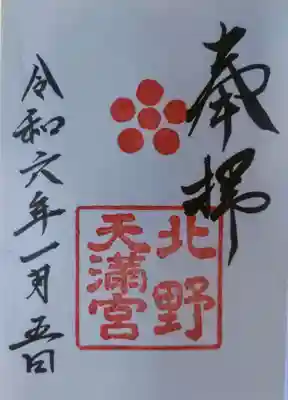 奉拝
北野
天満宮
令和六年一月五日